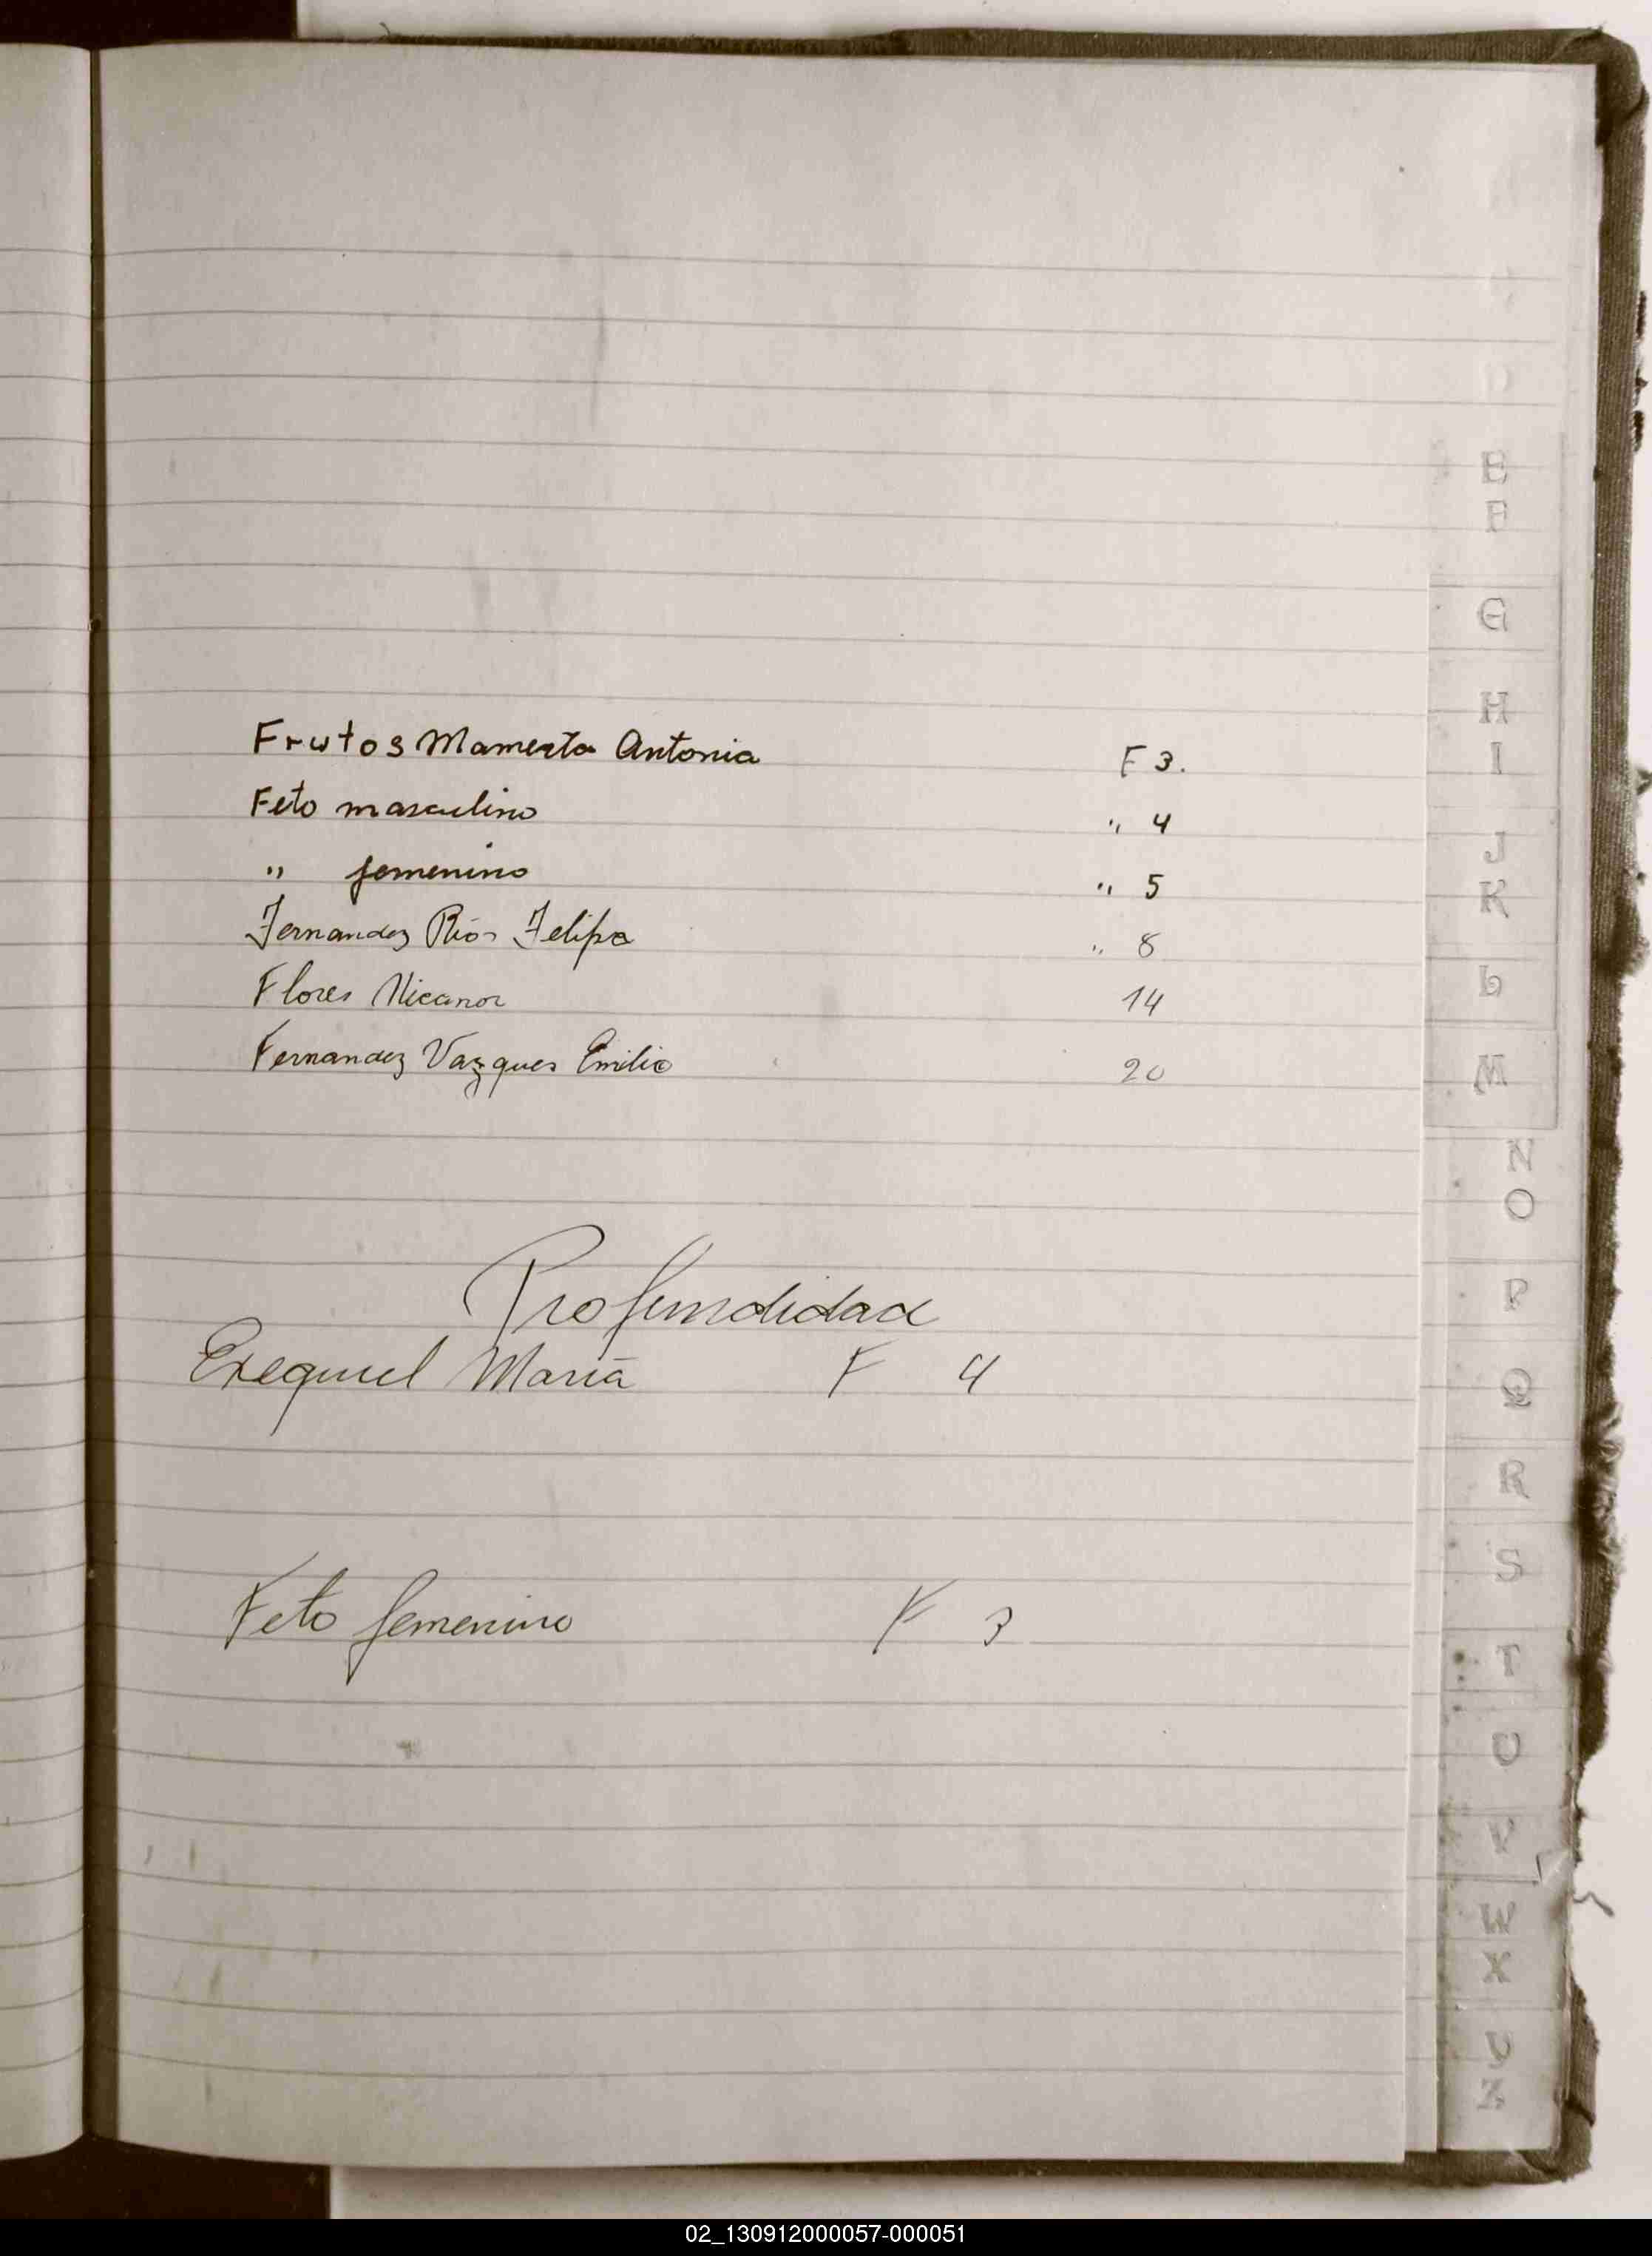 Frutos Mamerta Antonia F 3.
Feto masculino " 4
" femenino " 5
Fernandez Ríos Felipa " 8
Flores Nicanor 14
Fernandez Vazques Emilio 20
Profundidad
Exequiel María F 4
Feto femenino F 3
E
F
G
H
I
J
K
L
M
N
O
P
Q
R
S
T
U
V
W
X
Z
02_130912000057-000051